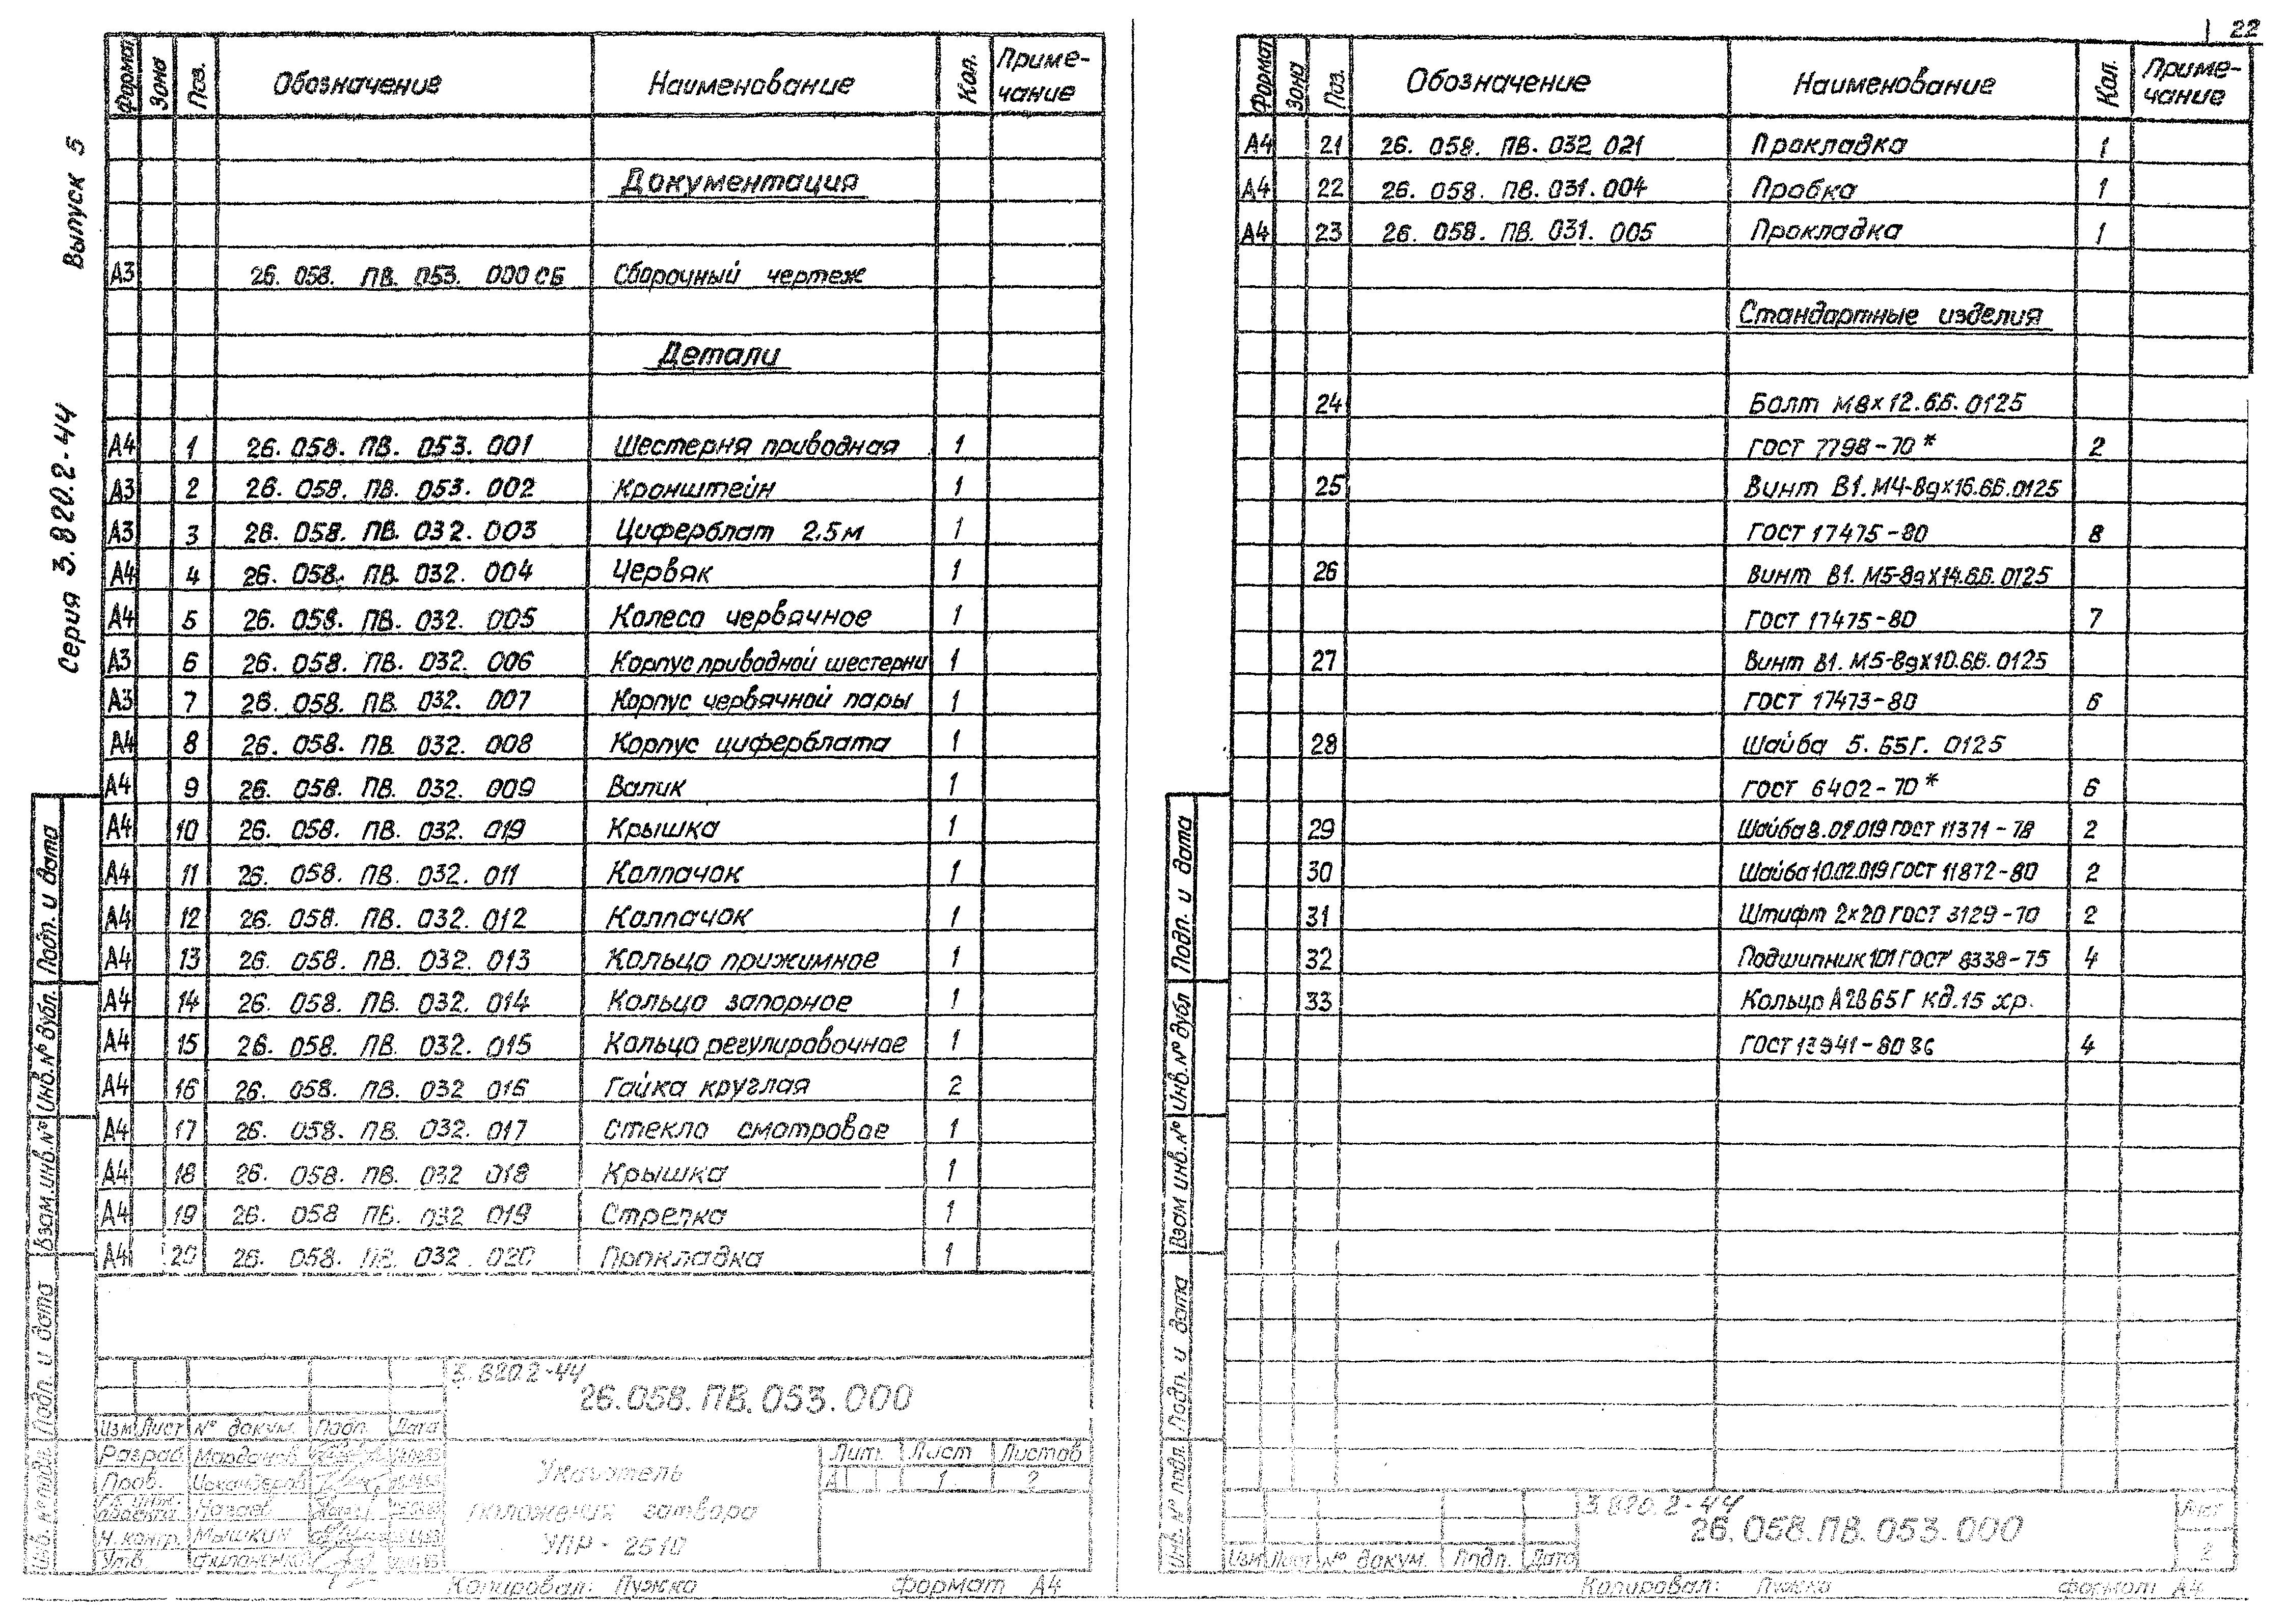 22
Серия 3.820.2-44 Выпуск 5
Формат Зона Поз. Обозначение Наименование Кол. Приме-чание
Документация
А3 26. 058. ПВ. 053. 000 СБ Сборочный чертеж
Детали
А4 1 26. 058. ПВ. 053. 001 Шестерня приводная 1
А3 2 26. 058. ПВ. 053. 002 Кронштейн 1
А3 3 26. 058. ПВ. 032. 003 Циферблат 2,5м 1
А4 4 26. 058. ПВ. 032. 004 Червяк 1
А4 5 26. 058. ПВ. 032. 005 Колесо червячное 1
А3 6 26. 058. ПВ. 032. 006 Корпус приводной шестерни 1
А3 7 26. 058. ПВ. 032. 007 Корпус червячной пары 1
А4 8 26. 058. ПВ. 032. 008 Корпус циферблата 1
А4 9 26. 058. ПВ. 032. 009 Валик 1
А4 10 26. 058. ПВ. 032. 019 Крышка 1
А4 11 26. 058. ПВ. 032. 011 Колпачок 1
А4 12 26. 058. ПВ. 032. 012 Колпачок 1
А4 13 26. 058. ПВ. 032. 013 Кольцо прижимное 1
А4 14 26. 058. ПВ. 032. 014 Кольцо запорное 1
А4 15 26. 058. ПВ. 032. 015 Кольцо регулировочное 1
А4 16 26. 058. ПВ. 032 016 Гайка круглая 2
А4 17 26. 058. ПВ. 032. 017 Стекло смотровое 1
А4 18 26. 058. ПВ. 032 018 Крышка 1
А4 19 26. 058 ПВ. 032 019 Стрелка 1
А4 20 26. 058. ПВ. 032. 020 Прокладка 1
Подп. и дата
Инв. № дубл.
Взам. инв. №
Подп. и дата
Инв. № подл.
3.820.2-44
26.058.ПВ.053.000
Изм Лист № докум. Подп. Дата
Разраб Марданов
Пров. Искандеров
Гл. инж. проекта
Н. контр. Мышкин
Утв. Филоненко
Указатель
положения затвора
УПР-2510
Лит. Лист Листов
А 1 2
Копировал: Пужко Формат А4
Формат Зона Поз. Обозначение Наименование Кол. Приме-чание
А4 21 26. 058. ПВ. 032 021 Прокладка 1
А4 22 26. 058. ПВ. 031. 004 Пробка 1
А4 23 26. 058. ПВ. 031. 005 Прокладка 1
Стандартные изделия
24 Болт М8×12.66.0125
ГОСТ 7798-70* 2
25 Винт В1.М4-8gx16.66.0125
ГОСТ 17475-80 8
26 Винт В1.М5-8gx14.66.0125
ГОСТ 17475-80 7
27 Винт В1.М5-8gx10.66.0125
ГОСТ 17473-80 6
28 Шайба 5. 65Г. 0125
ГОСТ 6402-70* 6
29 Шайба 8.02.019 ГОСТ 11371-78 2
30 Шайба 10.02.019 ГОСТ 11872-80 2
31 Штифт 2×20 ГОСТ 3129-70 2
32 Подшипник 101 ГОСТ 8338-75 4
33 Кольцо А28 65Г кд.15 хр.
ГОСТ 13941-80 4
Подп. и дата
Инв. № дубл
Взам инв. №
Подп. и дата
Инв. № подл.
3.820.2-44
26.058.ПВ.053.000
Изм Лист № докум. Подп. Дата
Лист
2
Копировал: Пужко формат А4